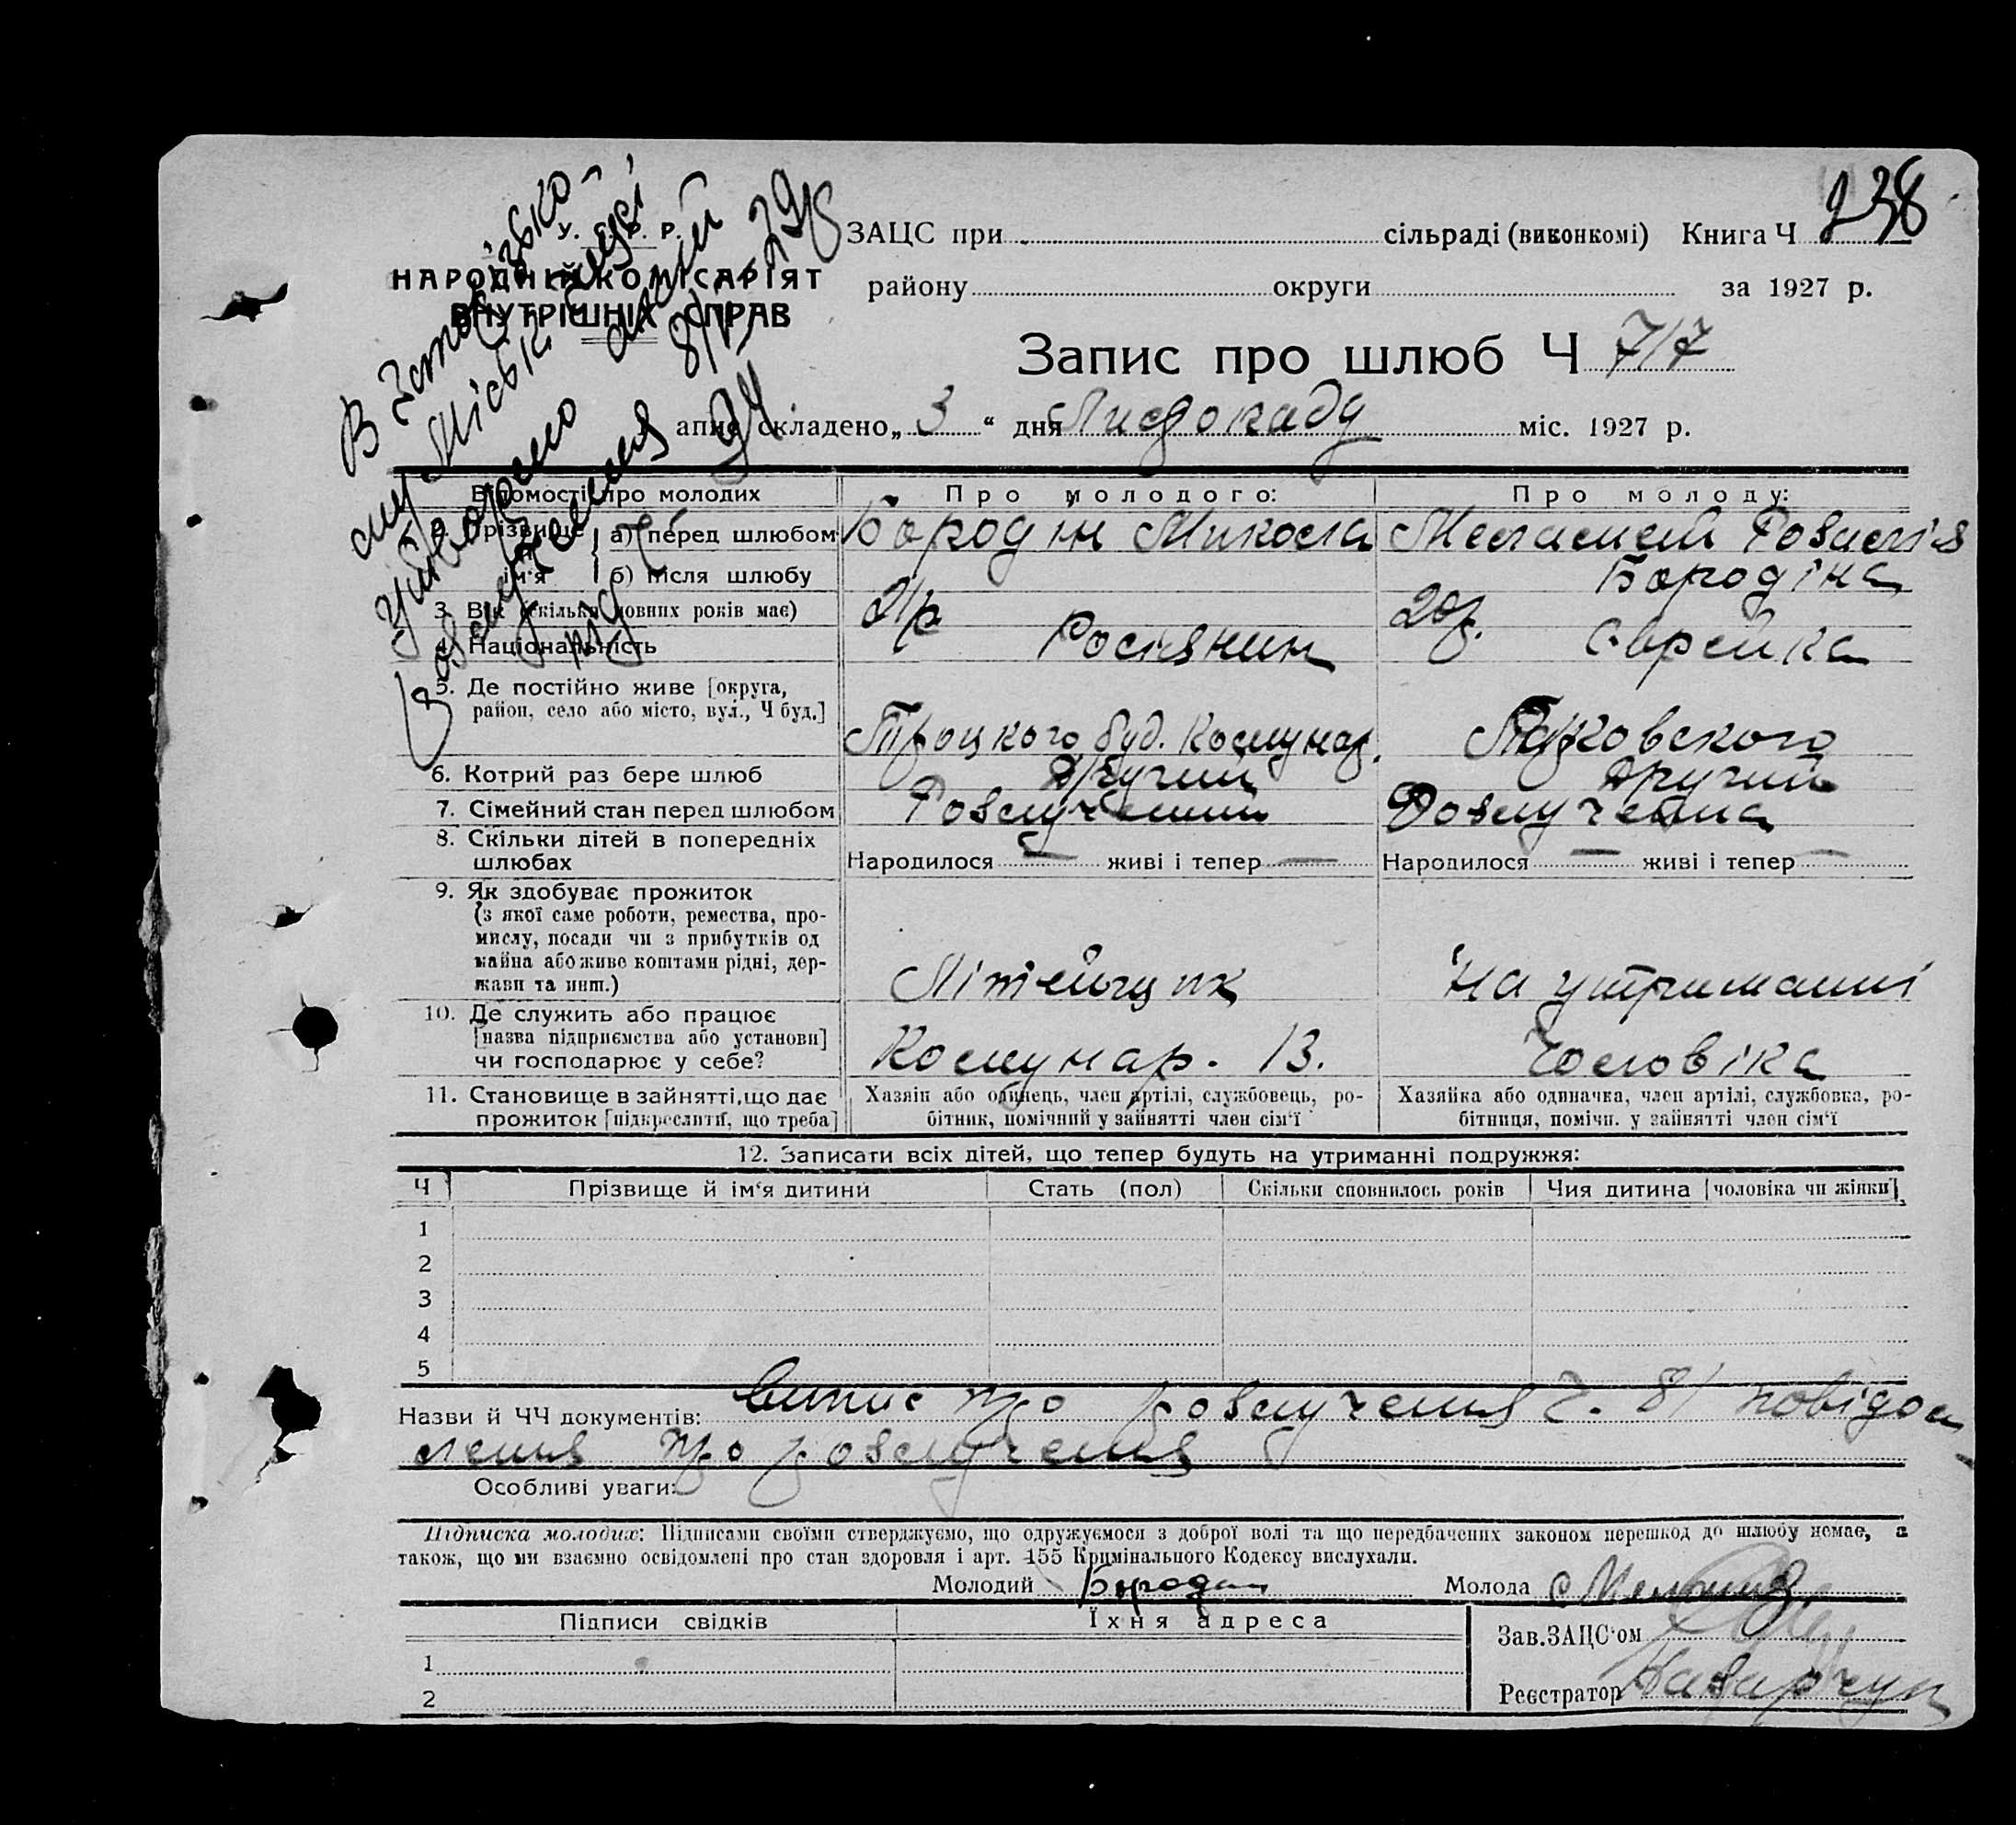 238
У. С. Р. Р.
НАРОДНІЙ КОМІСАРІЯТ
ВНУТРІШНІХ СПРАВ
ЗАЦС при сільраді (виконкомі) Книга Ч
району округи за 1927 р.
Запис про шлюб Ч 717
апис складено „ 3 “ дня Листопаду міс. 1927 р.
Відомості про молодих
Про молодого:
Про молоду:
Прізвище й ім'я
а) перед шлюбом
Бородін Микола
б) після шлюбу
Бородіна
3. Вік (скільки повних років має)
21 р
20 р.
4. Національність
Росіянин
Єврейка
5. Де постійно живе [округа,
район, село або місто, вул., Ч буд.]
Троцкого буд. Комунар.
6. Котрий раз бере шлюб
Другий
Другий
7. Сімейний стан перед шлюбом
Розлученний
Розлученна
8. Скільки дітей в попередніх
шлюбах
Народилося — живі і тепер —
Народилося — живі і тепер —
9. Як здобуває прожиток
(з якої саме роботи, ремества, про-
мислу, посади чи з прибутків од
майна або живе коштами рідні, дер-
жави та инш.)
Літейщик
На утриманні
10. Де служить або працює
[назва підприємства або установи]
чи господарює у себе?
Комунар. 13.
Чоловіка
11. Становище в зайнятті, що дає
прожиток [підкреслити, що треба]
Хазяїн або одинець, член артілі, службовець, ро-
бітник, помічний у зайнятті член сім'ї
Хазяйка або одиначка, член артілі, службовка, ро-
бітниця, помічн. у зайнятті член сім'ї
12. Записати всіх дітей, що тепер будуть на утриманні подружжя:
Ч Прізвище й ім'я дитини Стать (пол) Скільки сповнилось років Чия дитина [чоловіка чи жінки]
1
2
3
4
5
Назви й ЧЧ документів: Випис про розлучення Ч. 81 повідом
лення про розлучення
Особливі уваги:
Підписка молодих: Підписами своїми стверджуємо, що одружуємося з доброї волі та що передбачених законом перешкод до шлюбу немає, а
також, що ми взаємно освідомлені про стан здоровля і арт. 155 Кримінального Кодексу вислухали.
Молодий Бородин Молода
Підписи свідків Їхня адреса
Зав. ЗАЦС'ом
1
Реєстратор Назарчук
2